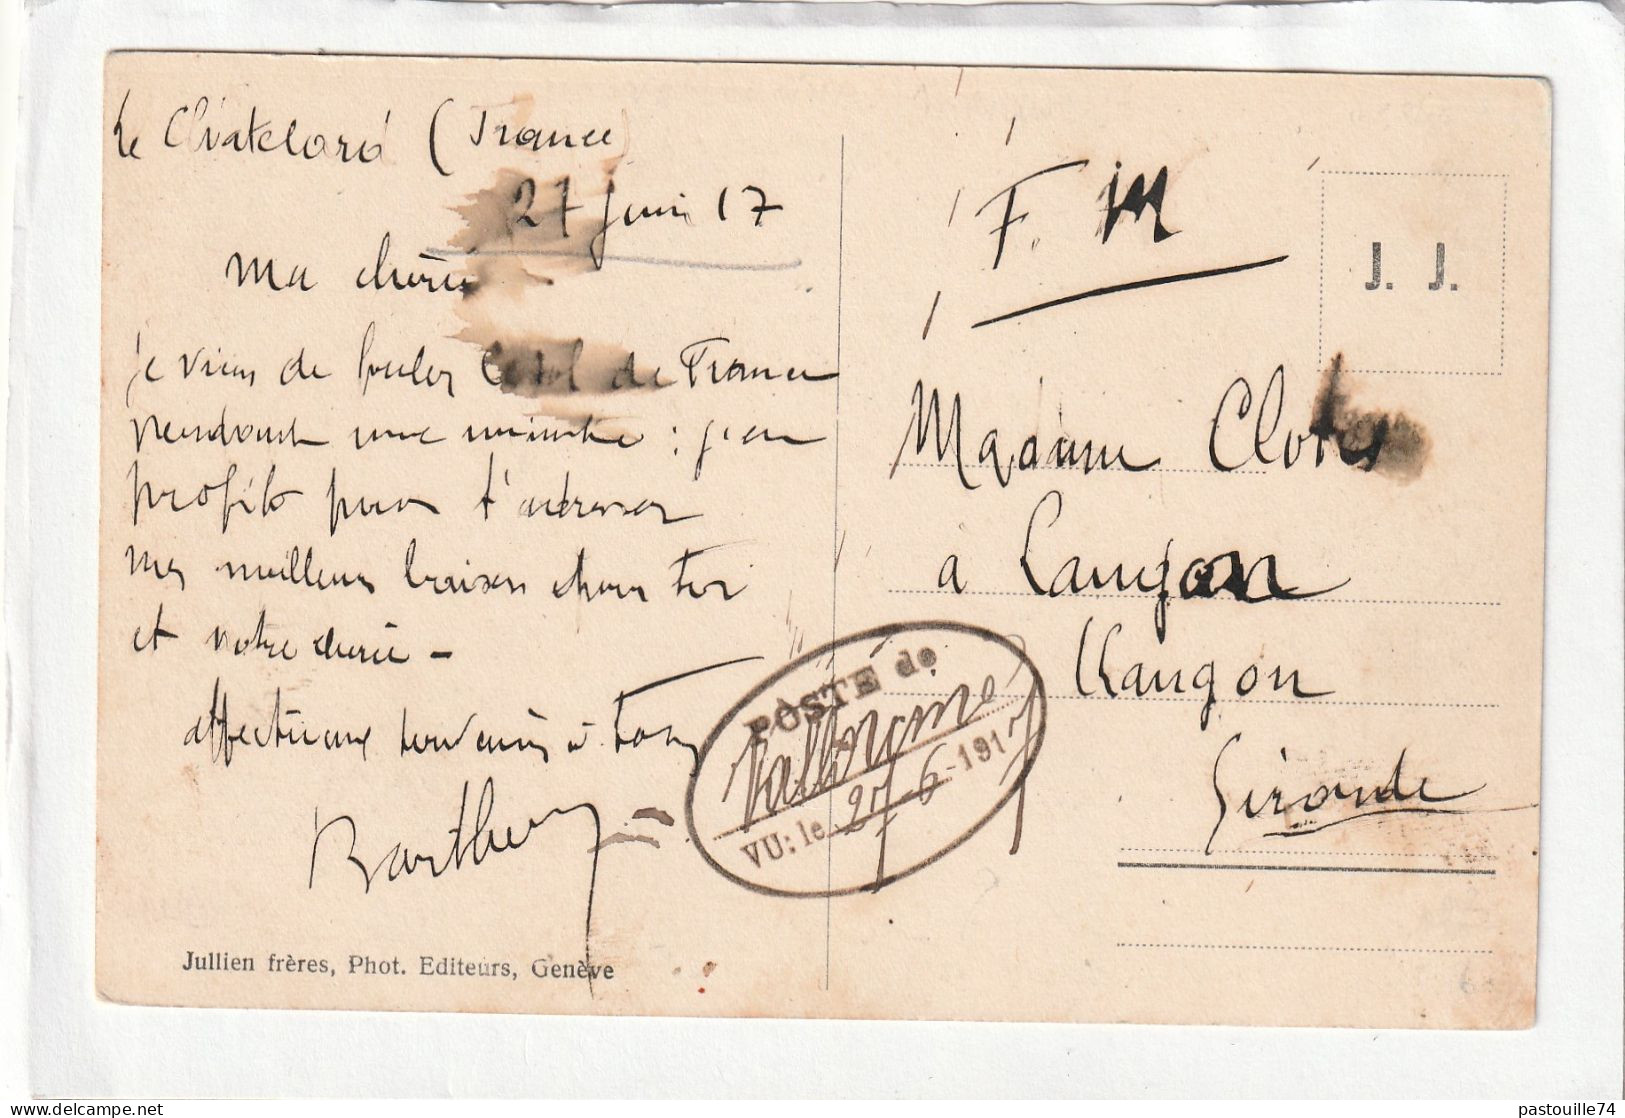 Le Châtelard (France)
27 juin 17
Ma chérie
je viens de fouler le sol de France
pendant une minute : j'en
profite pour t'adresser
mes meilleurs baisers pour toi
et notre chérie -
affectueux souvenirs à tous
Barthez
F. M
J. J.
Madame Clotis
à Langon
Langon
Gironde
POSTE de
Vallorcine
VU: le 27-6-1917
Jullien frères, Phot. Editeurs, Genève
pastouille74